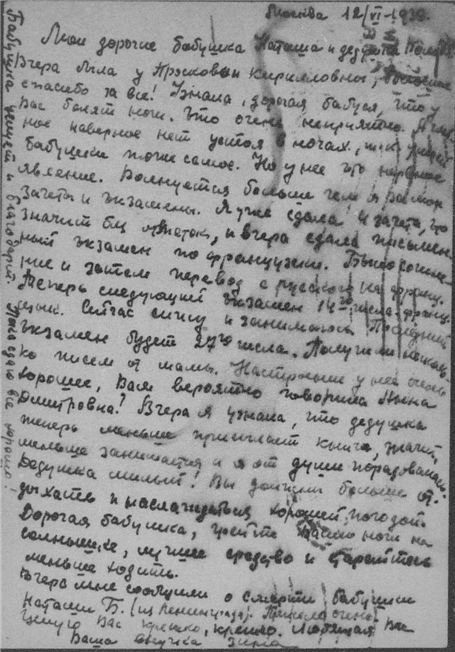 Москва 12/VI-1939.
Мои дорогие бабушка Наташа и дедушка
Вчера была у Прасковьи Кирилловны, большое
спасибо за все! Узнала, дорогая бабуся, что у
Вас болят ноги. Это очень неприятно. А глав-
ное наверное нет устоя в ногах, т.к. у моей
бабушки тоже самое. Но у нее это нервное
явление. Волнуется больше чем я за мои
зачеты и экзамены. Я уже сдала 4 зачета, что
значит без отметок, и вчера сдала письмен-
ный экзамен по французски. Было сочине-
ние и затем перевод с русского на франц.
Теперь следующий экзамен 14го числа франц.
язык. Сейчас сижу и занимаюсь. Последний
экзамен будет 27го числа. Получили несколь-
ко писем от мамы. Настроение у нее очень
хорошее, Вам вероятно говорила Анна
Дмитровна? Вчера я узнала, что дедушка
теперь меньше присылает книги, значит,
меньше занимается и я от души порадовалась.
Дедушка милый! Вы должны больше от-
дыхать и наслаждаться хорошей погодой.
Дорогая бабушка, грейте Ваши ноги на
солнышке, лучшее средство и старайтесь
меньше ходить.
Вчера мне сообщили о смерти бабушки
Наташи Б. (из Ленинграда).
Целую Вас крепко, крепко. Любящая Вас
Ваша внучка Зина
Бабушка целует и благодарит. Пока сдаю все хорошо!